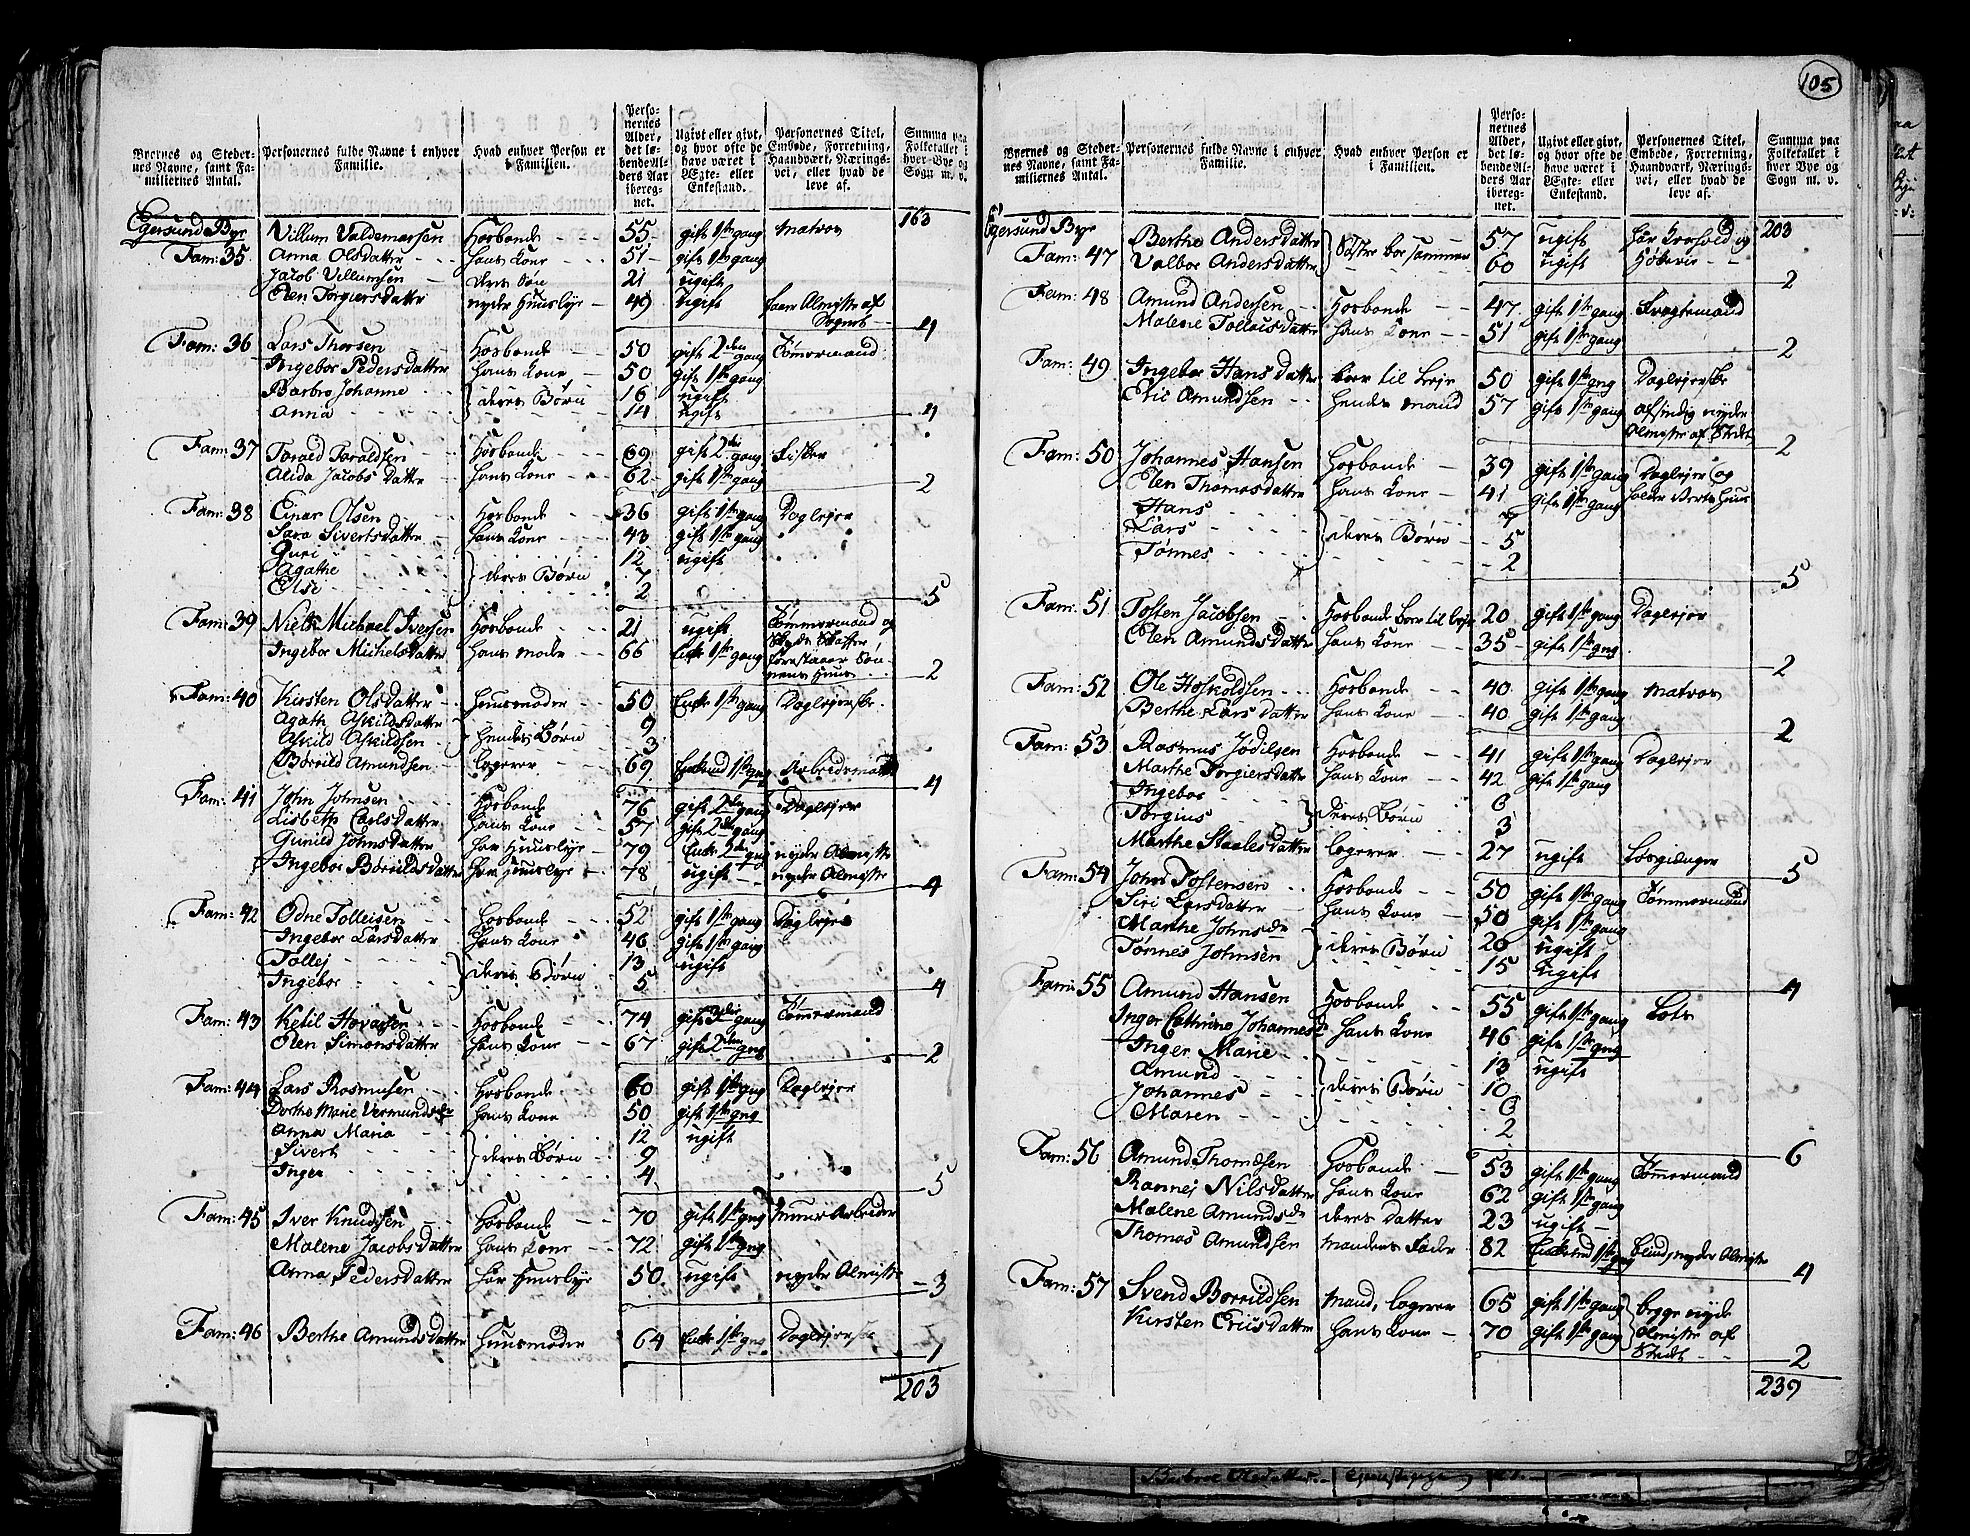 105
Byernes og Stedernes Navne, samt Familiernes Antal.
Personernes fulde Navne i enhver Familie.
Hvad enhver Person er i Familien.
Personernes Alder, det løbende Alders Aar iberegnet.
Ugivt eller givt, og hvor ofte de have været i Ægte- eller Enkestand.
Personernes Titel, Embede, Forretning, Haandværk, Næringsvei, eller hvad de leve af.
Summa paa Folketallet i hver Bye og Sogn m. v.
Egersund Bye Villum Valdemarsen Hosbonde 55 gift 1ste gang Matros 163
Fam: 35 Anna Olsdatter hans Kone 51 gift 1ste gang
Jacob Villumsen deres Søn 21 ugift
Elen Torgiersdatter nyder Huuslye 49 ugift faar Almisse af Sognet
4
Fam: 36 Lars Thorsen Hosbonde 50 gift 2den gang Tømermand
Ingebor Pedersdatter hans Kone 50 gift 1ste gang
Barbro Johanne } deres Børn 16 ugift
Anna 14 ugift
4
Fam: 37 Tarald Taraldsen Hosbonde 69 gift 2den gang Fisker
Alida Jacobs Datter hans Kone 62 gift 1ste gang
2
Fam: 38 Einar Olsen Hosbonde 36 gift 1ste gang Daglejer
Sara Sivertsdatter hans Kone 43 gift 1ste gang
Guri 12 ugift
Agathe } deres Børn 7
Else 2
5
Fam: 39 Niels Michael Iversen Hosbonde 21 ugift Tømmermand og
Ingebor Michelsdatter hans Moder 66 Enke 1ste gang forestaaer Sønnens Huus
2
Fam: 40 Kirsten Olsdatter Huusmoder 50 Enke 1ste gang Daglejerske
Agath Askildsdatter } hendes Børn 9
Askild Askildsen 3
Borrild Amundsen logerer 69 Enkemd 1ste gng Arbeidsmand
4
Fam: 41 John Johnsen Hosbonde 76 gift 2den gang Daglejer
Lisbeth Carlsdatter hans Kone 57 gift 2den gang
Gunild Johnsdatter har Huuslye 79 Enke 2den gng nyder Almisse
Ingebor Borrildsdatter har Huuslye 78 ugift nyder Almisse
4
Fam: 42 Odne Tolleisen Hosbonde 52 gift 1ste gang Daglejer
Ingebor Larsdatter hans Kone 46 gift 1ste gang
Tollej } deres Børn 13 ugift
Ingebor 5
4
Fam: 43 Ketil Hovarsen Hosbonde 74 gift 3die gang Tømmermand
Elen Simonsdatter hans Kone 67 gift 2den gng
2
Fam: 44 Lars Rasmusen Hosbonde 60 gift 1ste gang Daglejer
Dorthe Marie Vermundsdr hans Kone 50 gift 1ste gng
Anna Maria 12 ugift
Sivert } deres Børn 9
Inger 4
5
Fam: 45 Iver Knudsen Hosbonde 70 gift 1ste gng Arbeider
Malene Jacobs Datter hans Kone 72 gift 1ste gng
Anna Pedersdatter har Huuslye 50 ugift nyder Almisse
3
Fam: 46 Berthe Amunds Datter Huusmoder 64 Enke 1ste gng Daglejerske
1
203
Byernes og Stedernes Navne, samt Familiernes Antal.
Personernes fulde Navne i enhver Familie.
Hvad enhver Person er i Familien.
Personernes Alder, det løbende Alders Aar iberegnet.
Ugivt eller givt, og hvor ofte de have været i Ægte- eller Enkestand.
Personernes Titel, Embede, Forretning, Haandværk, Næringsvei, eller hvad de leve af.
Summa paa Folketallet i hver Bye og Sogn m. v.
Egersund Bye Berthe Andersdatter } Søstre boe sammen 57 ugift 203
Fam: 47 Valbor Andersdatter 60 ugift Høkerie
2
Fam: 48 Amund Andersen Hosbonde 47 gift 1ste gang Fragtemand
Malene Tollaisdatter hans Kone 51 gift 1ste gang
2
Fam: 49 Ingebor Hans datter boer til Leje 50 gift 1ste gng Daglejerske
Eric Amundsen hendes Mand 57 gift 1ste gang afsindig nyder Almisse af Stedet
2
Fam: 50 Johannes Hansen Hosbonde 39 gift 1ste gang Daglejer og
Elen Thomasdatter hans Kone 41 gift 1ste gang holder Vertshuus
Hans 7
Lars } deres Børn 5
Tønnes 2
5
Fam: 51 Tosten Jacobsen Hosbonde boer til Leje 20 gift 1ste gang Daglejer
Elen Amundsdatter hans Kone 35 gift 1ste gng
2
Fam: 52 Ole Hoskoldsen Hosbonde 40 gift 1ste gang Matros
Berthe Lars datter hans Kone 40 gift 1ste gang
2
Fam: 53 Rasmus Jødilsen Hosbonde 41 gift 1ste gang Daglejer
Marthe Torgiersdatter hans Kone 42 gift 1ste gang
Ingebor } deres Børn 6
Torgius 3
Marthe Staalesdatter logerer 27 ugift Løsgiænger
5
Fam: 54 John Tostensen Hosbonde 50 gift 1ste gang Tømmermand
Siri Larsdatter hans Kone 50 gift 1ste gang
Marthe Johnsdr } deres Børn 26 ugift
Tønnes Johnsen 15 ugift
4
Fam: 55 Amund Hansen Hosbonde 55 gift 1ste gang Lots
Inger Cathrine Johannesdr hans Kone 46 gift 1ste gng
Inger Marie 13 ugift
Amund } deres Børn 10
Johannes 6
Maren 2
6
Fam: 56 Amund Thomæsen Hosbonde 53 gift 1ste gang Tømmermand
Rannej Nilsdatter hans Kone 62 gift 1ste gang
Malene Amundsdr deres Datter 23 ugift
Thomas Amundsen Mandens Fader 82 Enkemd 1ste gng blind, nyder Almisse
4
Fam: 57 Svend Borrildsen Mand, logerer 65 gift 1ste gang } begge nyde
Kirsten Eriisdatter hans Kone 70 gift 1ste gang Almisse af Stedet
2
239